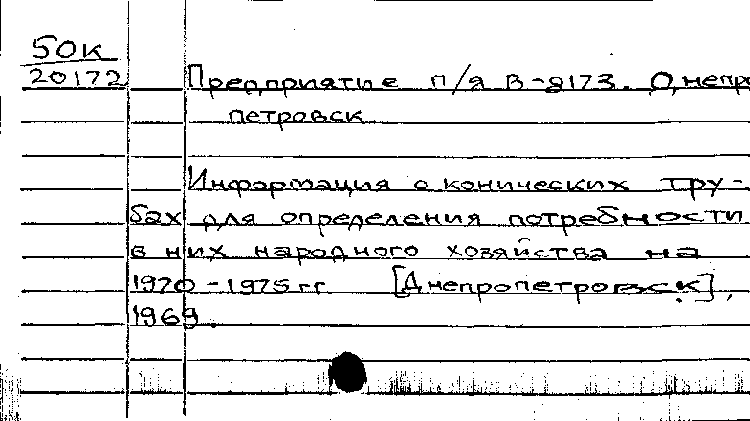 50к
20172
Предприятие п/я В-8173. Днепро
петровск
Информация о конических тру-
бах для определения потребности
в них народного хозяйства на
1970-1975 гг. [Днепропетровск],
1969.